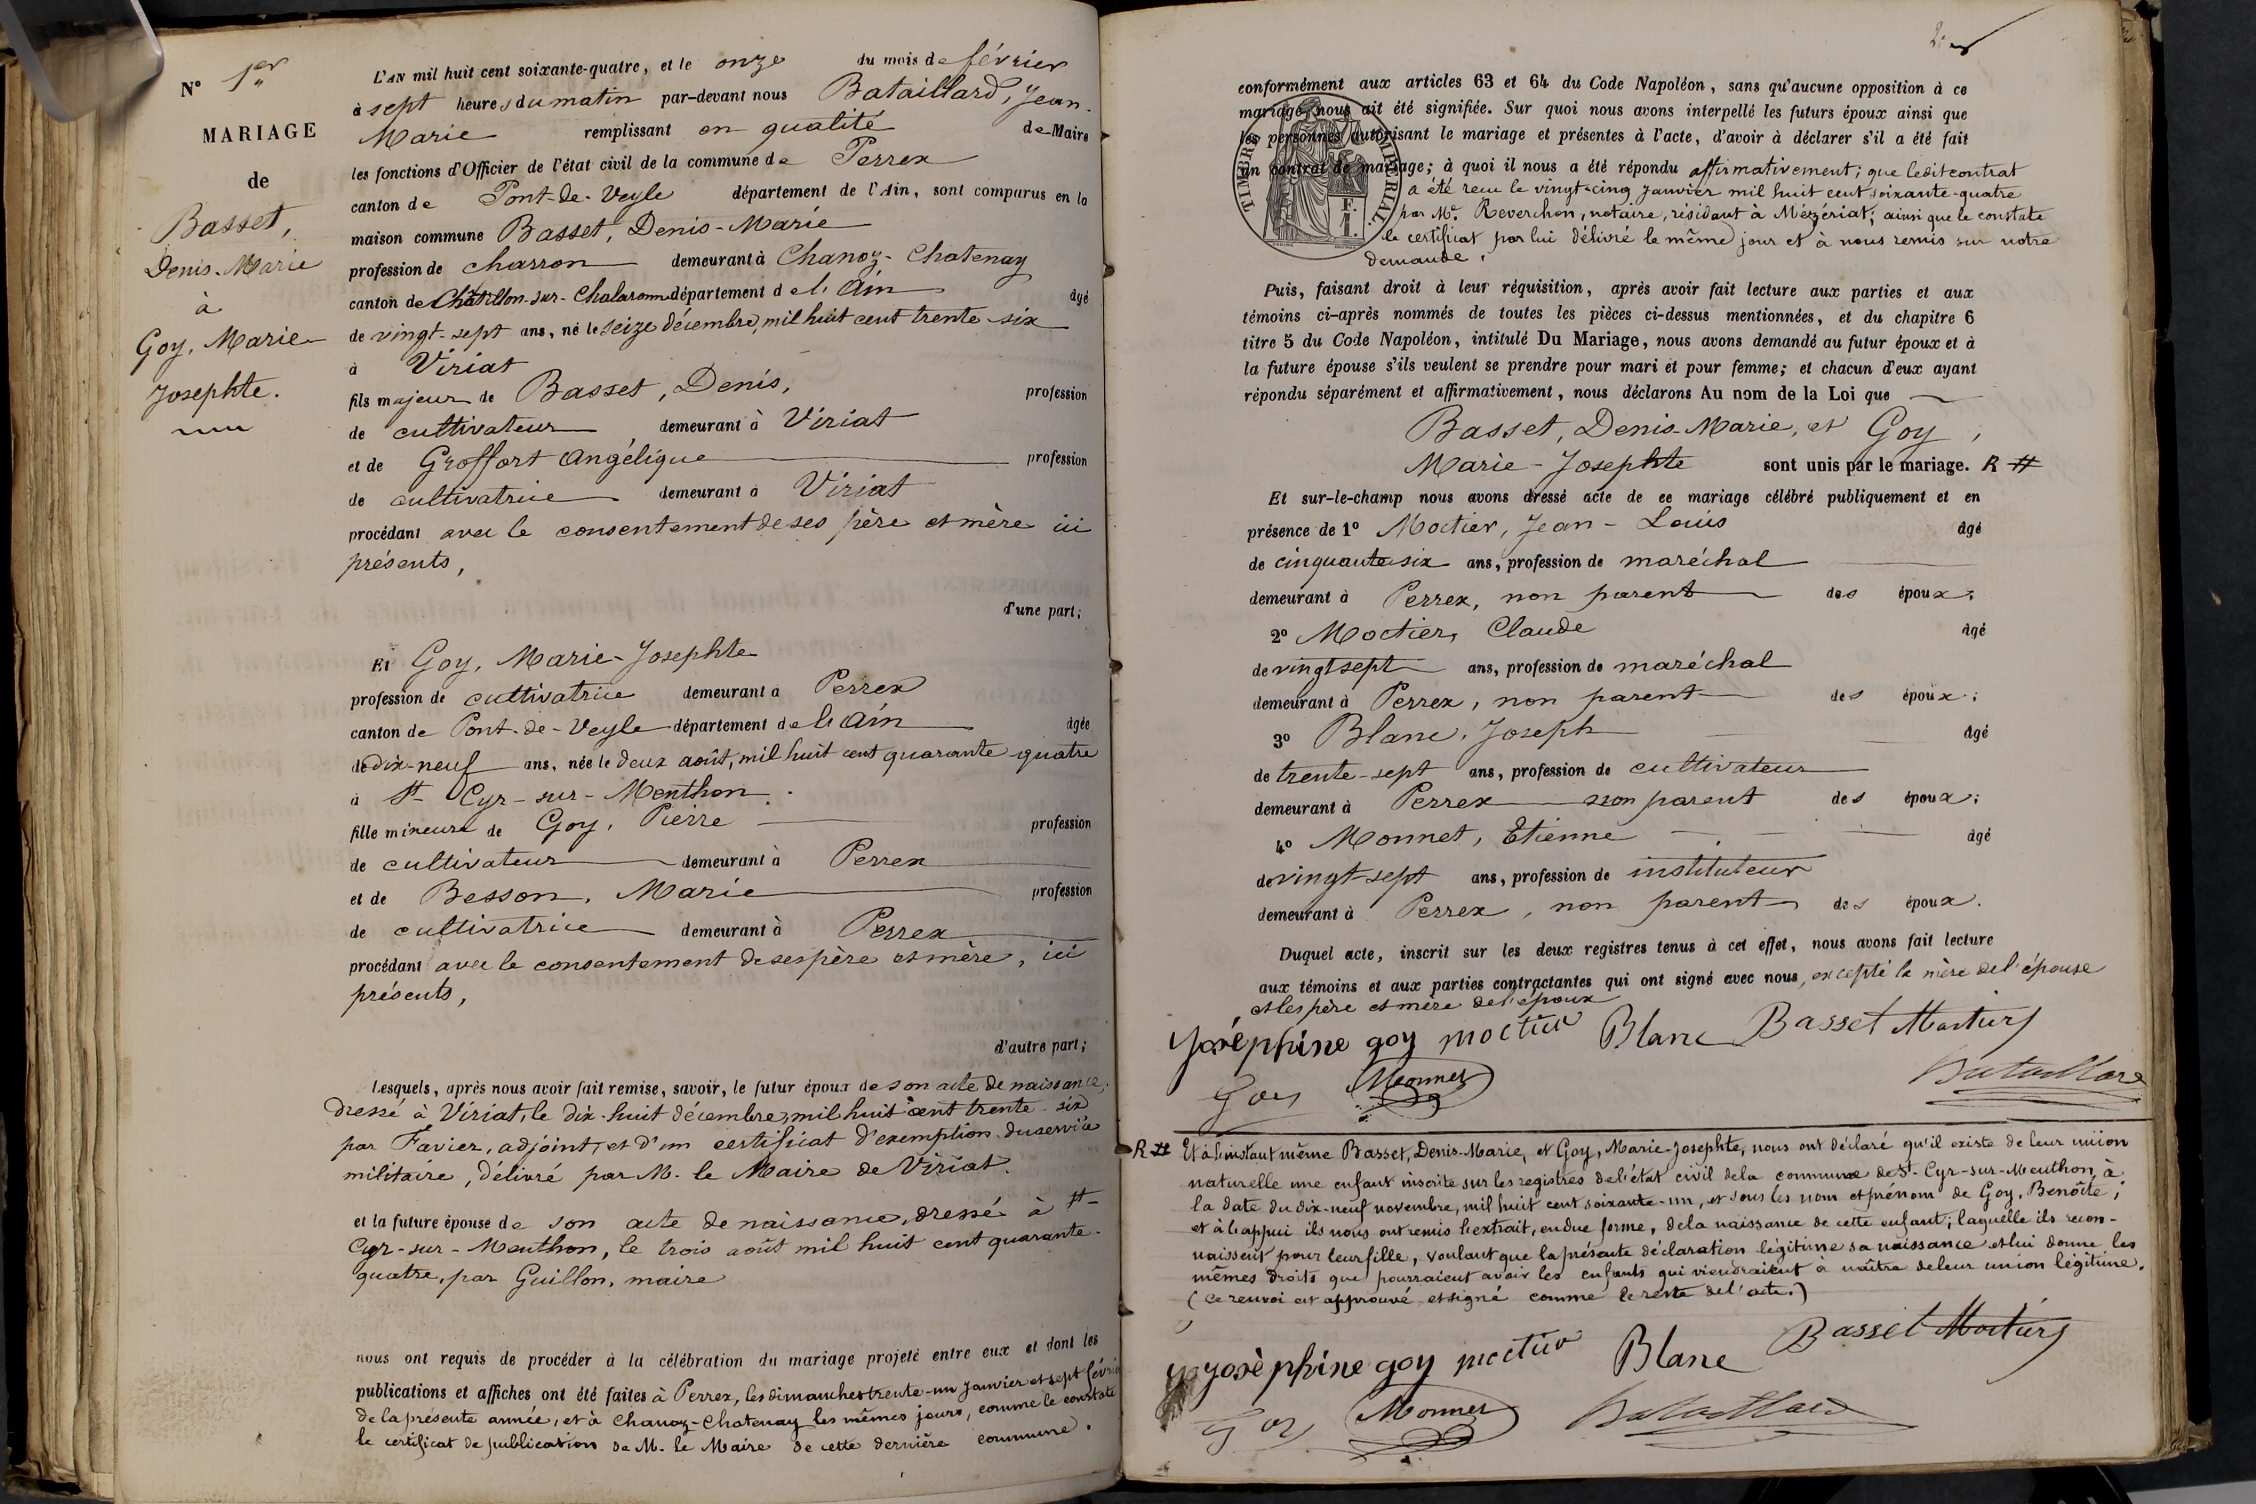 N° 1er
MARIAGE
de
Basset,
Denis-Marie
à
Goy, Marie-
Josephte.
L'AN mil huit cent soixante-quatre, et le onze du mois de février
à sept heures du matin par-devant nous Bataillard, Jean-
Marie remplissant en qualité de Maire
les fonctions d'Officier de l'état civil de la commune de Perrex
canton de Pont-de-Veyle département de l'Ain, sont comparus en la
maison commune Basset, Denis-Marie
profession de charron demeurant à Chanoz-Chatenay
canton de Châtillon-sur-Chalaronne département de l'Ain âgé
de vingt-sept ans, né le seize décembre, mil huit cent trente-six
à Viriat
fils majeur de Basset, Denis, profession
de cultivateur demeurant à Viriat
et de Groffort Angélique profession
de cultivatrice demeurant à Viriat
procédant avec le consentement de ses père et mère ici
présents,
d'une part;
Et Goy, Marie-Josephte
profession de cultivatrice demeurant à Perrex
canton de Pont-de-Veyle département de l'Ain âgée
de dix-neuf ans, née le deux août, mil huit cent quarante-quatre
à St-Cyr-sur-Menthon.
fille mineure de Goy, Pierre profession
de cultivateur demeurant à Perrex
et de Besson, Marie profession
de cultivatrice demeurant à Perrex
procédant avec le consentement de ses père et mère, ici
présents,
d'autre part;
Lesquels, après nous avoir fait remise, savoir, le futur époux de son acte de naissance,
dressé à Viriat, le dix-huit décembre, mil huit cent trente-six
par Favier, adjoint, et d'un certificat d'exemption du service
militaire, délivré par M. le Maire de Viriat.
et la future épouse de son acte de naissance, dressé à St-
Cyr-sur-Menthon, le trois août mil huit cent quarante-
quatre, par Guillon, maire
nous ont requis de procéder à la célébration du mariage projeté entre eux et dont les
publications et affiches ont été faites à Perrex, les dimanches trente-un Janvier et sept février
de la présente année, et à Chanoz-Chatenay les mêmes jours, comme le constate
le certificat de publication de M. le Maire de cette dernière commune.
conformément aux articles 63 et 64 du Code Napoléon, sans qu'aucune opposition à ce
mariage nous ait été signifiée. Sur quoi nous avons interpellé les futurs époux ainsi que
les personnes autorisant le mariage et présentes à l'acte, d'avoir à déclarer s'il a été fait
un contrat de mariage; à quoi il nous a été répondu affirmativement; que ledit contrat
a été reçu le vingt-cinq Janvier mil huit cent soixante-quatre
par Me. Reverchon, notaire, résidant à Mézériat; ainsi que le constate
le certificat par lui délivré le même jour et à nous remis sur notre
demande.
TIMBRE IMPERIAL
F.
1.
Puis, faisant droit à leur réquisition, après avoir fait lecture aux parties et aux
témoins ci-après nommés de toutes les pièces ci-dessus mentionnées, et du chapitre 6
titre 5 du Code Napoléon, intitulé Du Mariage, nous avons demandé au futur époux et à
la future épouse s'ils veulent se prendre pour mari et pour femme; et chacun d'eux ayant
répondu séparément et affirmativement, nous déclarons Au nom de la Loi que
Basset, Denis-Marie, et Goy,
Marie-Josephte sont unis par le mariage. R #
Et sur-le-champ nous avons dressé acte de ce mariage célébré publiquement et en
présence de 1° Moctier, Jean-Louis âgé
de cinquante-six ans, profession de maréchal
demeurant à Perrex, non parent des époux;
2° Moctier, Claude âgé
de vingt sept ans, profession de maréchal
demeurant à Perrex, non parent des époux;
3° Blanc, Joseph âgé
de trente-sept ans, profession de cultivateur
demeurant à Perrex non parent des époux;
4° Monnet, Etienne âgé
de vingt-sept ans, profession de instituteur
demeurant à Perrex, non parent des époux.
Duquel acte, inscrit sur les deux registres tenus à cet effet, nous avons fait lecture
aux témoins et aux parties contractantes qui ont signé avec nous, excepté la mère de l'épouse
et les père et mère de l'époux
Joséphine goy moctier Blanc Basset Moctier
Goy Monnet Bataillard
R # Et à l'instant même Basset, Denis-Marie, et Goy, Marie-Josephte, nous ont déclaré qu'il existe de leur union
naturelle une enfant inscrite sur les registres de l'état civil de la commune de St-Cyr-sur-Menthon, à
la date du dix-neuf novembre, mil huit cent soixante-un, et sous les nom et prénom de Goy, Benoîte;
et à l'appui ils nous ont remis l'extrait, en due forme, de la naissance de cette enfant; laquelle ils recon-
naissent pour leur fille, voulant que la présente déclaration légitime sa naissance et lui donne les
mêmes droits que pourraient avoir les enfants qui viendraient à naître de leur union légitime.
(Ce renvoi est approuvé et signé comme le reste de l'acte.)
Joséphine goy moctier Blanc Basset Moctier
Goy Monnet Bataillard